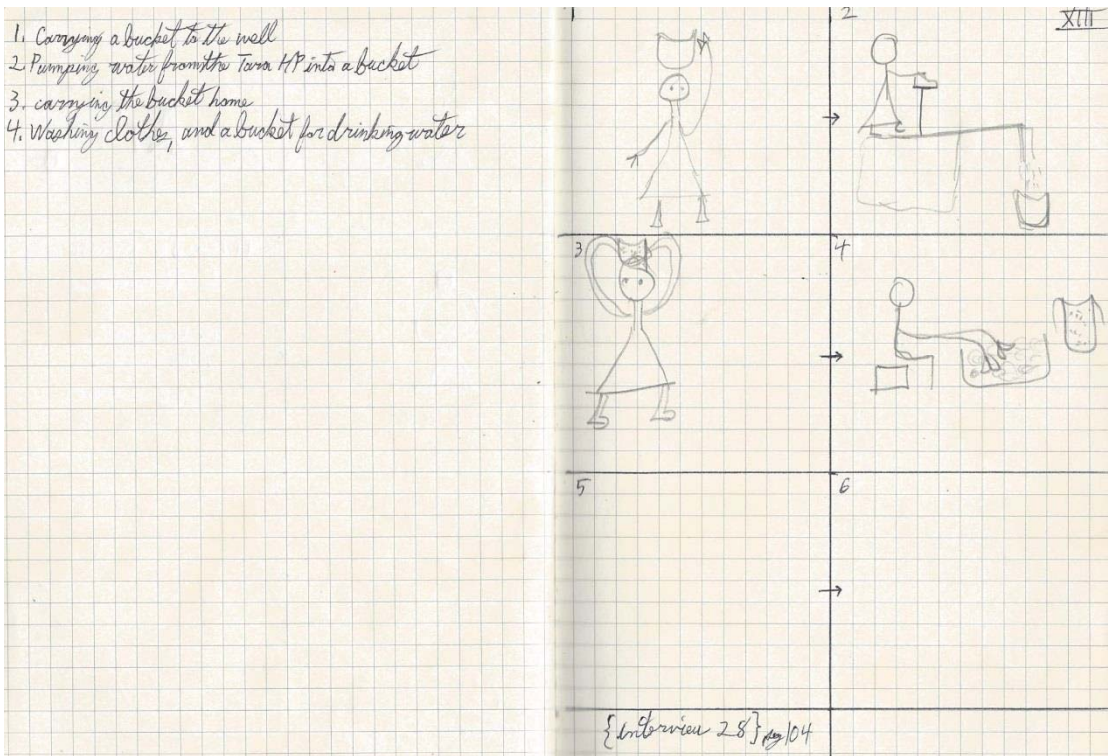 1. Carrying a bucket to the well
2. Pumping water from the Tara HP into a bucket
3. carrying the bucket home
4. Washing clothes, and a bucket for drinking water
1
2
XIII
3
4
5
6
{Interview 28} pg 104